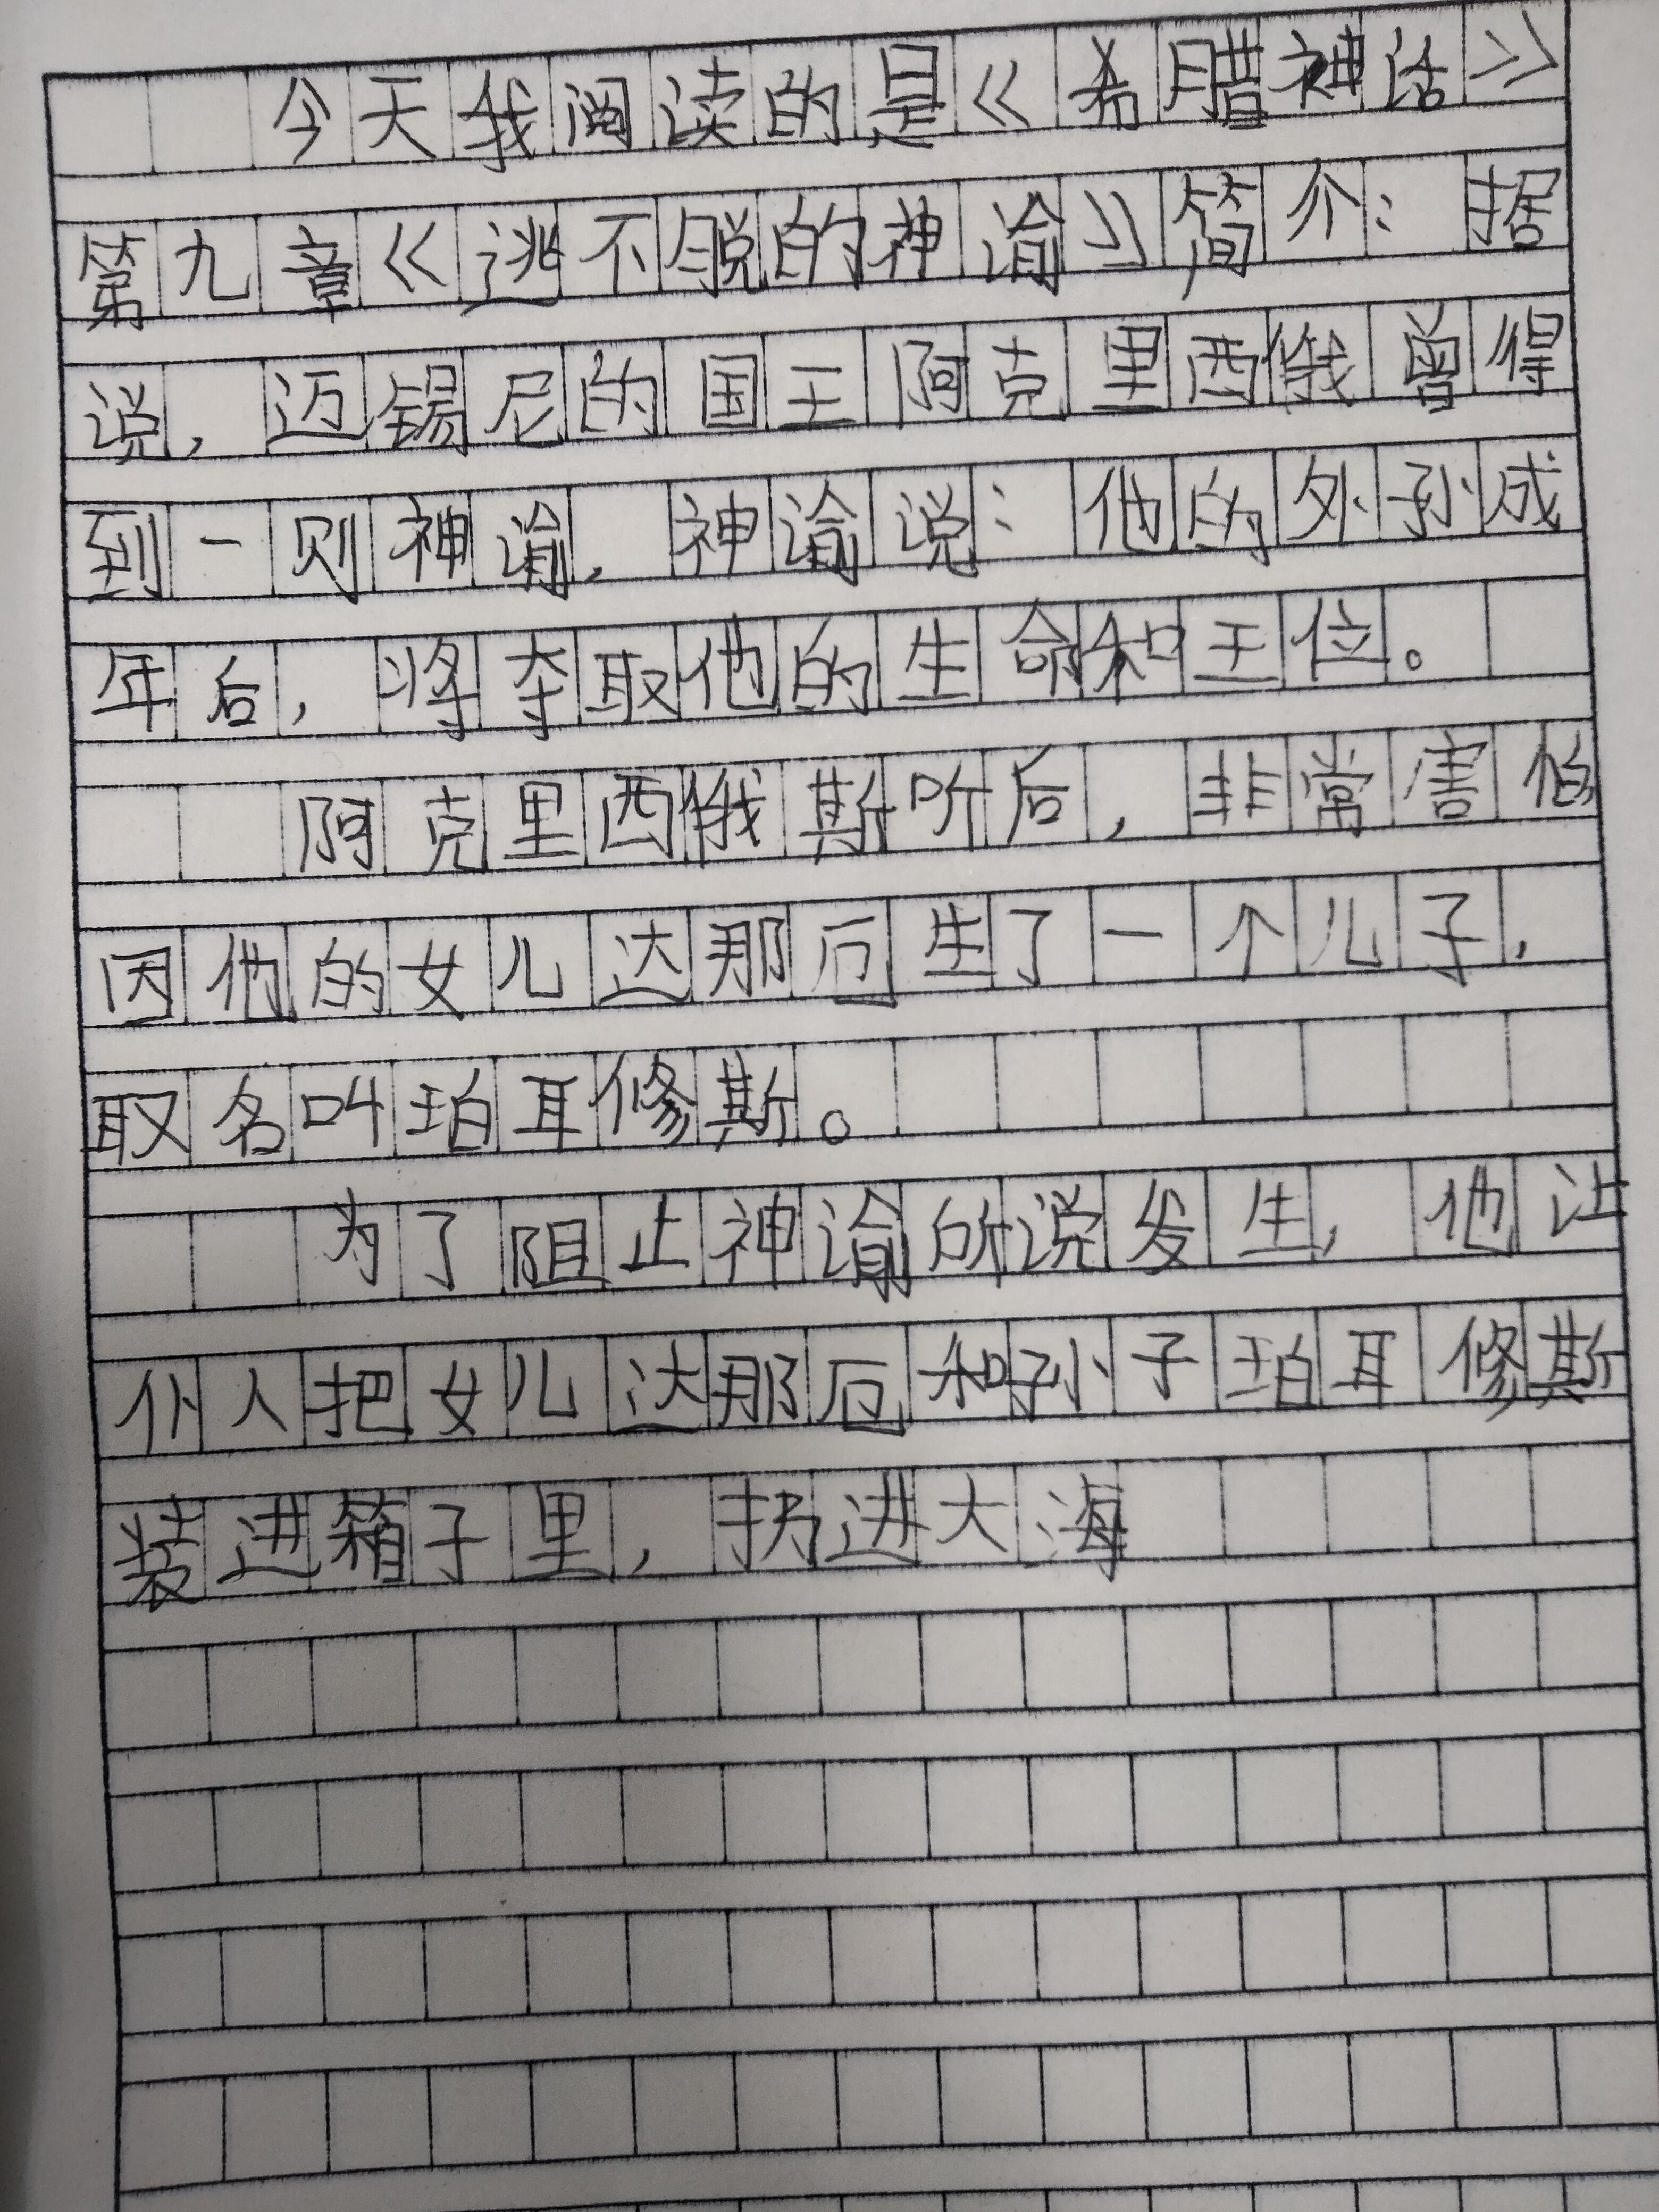 今天我阅读的是《希腊神话》
第九章《逃不脱的神谕》简介：据
说，迈锡尼的国王阿克里西俄曾得
到一则神谕，神谕说：他的外孙成
年后，将夺取他的生命和王位。
阿克里西俄斯听后，非常害怕
因他的女儿达那厄生了一个儿子，
取名叫珀耳修斯。
为了阻止神谕所说发生，他让
仆人把女儿达那厄和孙子珀耳修斯
装进箱子里，扔进大海